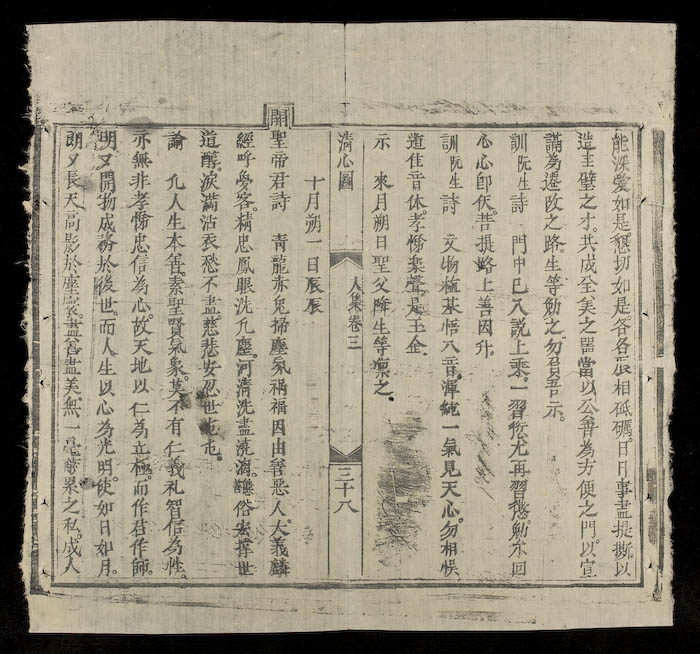 能深愛如是。懇切如是。各各辰相砥礪。日日事盡提撕。以
造圭璧之才。共成全美之器。當以公善為方便之門。以宣
講為遷改之路。生等勉之。勿負吾示。
訓阮生詩 門中已入說上乘。一習愆尤再習懲。勉爾回
心心印伕。菩提路上善因升。
訓阮生詩 文物樞基悟八音。渾純一氣見天心。勿相悞
道佳音休。孝悌樂聲是玉金。
示 來月朔日聖父降生等稟之。
清心圖
人集卷三
三十八
十月朔一日辰辰
關
聖帝君詩 青龍赤兔掃塵氛。祸福因由善惡人。大義麟
經呼夢客。精忠鳳眼洗凡塵。河清洗盡澆漓俗。宏撑世
道醇。淚滿沾衣愁不盡。慈悲安忍世屯屯。
諭 凡人生本善。素聖賢氣象。莫不有仁義礼智信為性。
亦無非孝悌忠信為心。故天地以仁為立極。而作君作師。
明又開物成務於後世。而人生以心為光明。使如日如月。
朗又長天高影於塵寰。盡善盡美。無一毫之私。成人